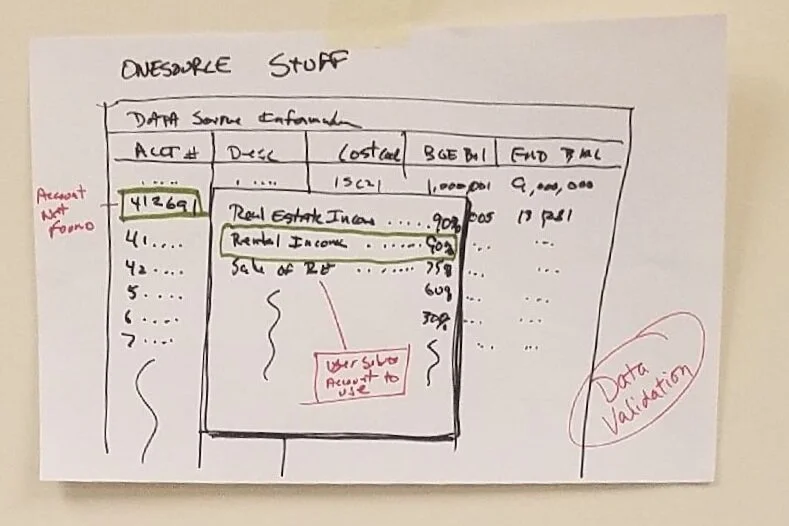 ONESOURCE STUFF
DATA Source Information
ACCT # Desc CostCode BGE Bal END BAL
..... ..... 15C21 1,000,001 9,000,000
Account
Not
Found
412691
Real Estate Income ..... 90%
Rental Income ...... 90%
Sale of RE ....... 75%
41....
42....
5.....
60%
6.....
30%
7....
User Selects
Account to
use
Data
Validation